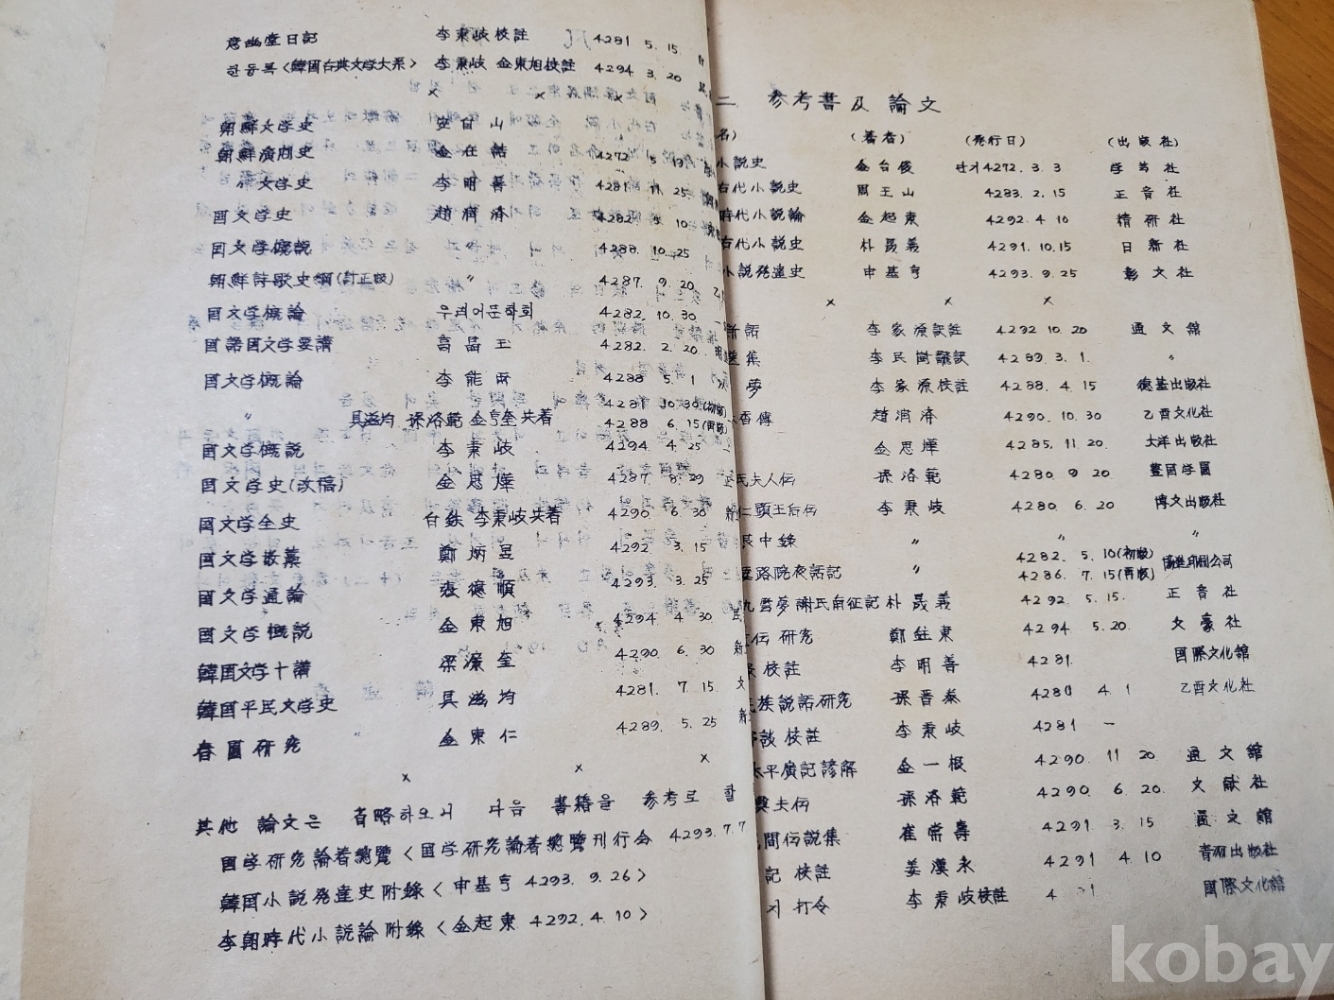 意幽堂日記 李秉岐校註 4281 5.15
한듕록<韓国古典文学大系> 李秉岐 金東旭校註 4294 3.20
× × ×
朝鮮文学史 安自山
朝鮮演劇史 金在喆 4272 5 13
〃 文学史 李明善 4281 11 25
国文学史 趙潤済 4282 5 10
国文学概説 〃 4288 10.25
朝鮮詩歌史綱(訂正版) 〃 4287. 9.20
国文学概論 우리어문학회 4282.10.30
国語国文学要講 高晶玉 4282. 2.20
国文学概論 李能雨 4288 5.1
〃 具滋均 孫洛範 金亨奎共著 4281 10 30(初版)
4288 6.15(再版)
国文学概説 李秉岐 4294 4.25
国文学史(改稿) 金思燁 4287 8.29
国文学全史 白鉄 李秉岐共著 4290 6.30
国文学散藁 鄭炳昱 4292. 3.15
国文学通論 張徳順 4293. 3.25
国文学概説 金東旭 4294 4 30
韓国文学十講 梁濂奎 4290. 6.30
韓国平民文学史 具滋均 4281. 7.15
春園研究 金東仁 4289. 5.25
× × ×
其他 論文은 省略하오니 다음 書籍을 参考로 할
国学研究論著總覽<国学研究論著總覽刊行会 4293.7.7
韓国小説発達史附録<申基亨 4293. 9.26>
李朝時代小説論附録<金起東 4292.4.10>
二 参考書及 論文
名) (著者) (発行日) (出版社)
小説史 金台俊 단기4272. 3. 3 学芸社
古代小説史 周王山 4283. 2. 15 正音社
時代小説論 金起東 4292. 4 10 精研社
古代小説史 朴晟義 4291. 10.15 日新社
小説発達史 申基亨 4293. 9. 25 彰文社
× × ×
新話 李家源訳註 4292 10. 20 通文館
選集 李民樹訳 4289. 3. 1. 〃
夢 李家源校註 4288. 4. 15 德基出版社
香傳 趙潤済 4290. 10. 30 乙酉文化社
金思燁 4285. 11. 20 大洋出版社
氏夫人伝 孫洛範 4280 9 20
仁顯王后伝 李秉岐 4280. 6. 20 博文出版社
中録 〃 〃 〃
路院夜話記 〃 4282. 5. 10(初版)
4286. 7. 15(再版)
九雲夢 謝氏南征記 朴晟義 4292 5.15. 正音社
伝 研究 鄭鉒東 4294 5.20. 文豪社
校註 李明善 4281. 国際文化館
民族説話研究 孫晋泰 4280 4. 1 乙酉文化社
談 校註 李秉岐 4281 —
太平廣記諺解 金一根 4290. 11 20 通文館
興夫伝 孫洛範 4290. 6. 20. 文献社
民間伝説集 崔常壽 4291 3. 15 通文館
記 校註 姜漢永 4291 4. 10 青羽出版社
打令 李秉岐校註 国際文化館
kobay